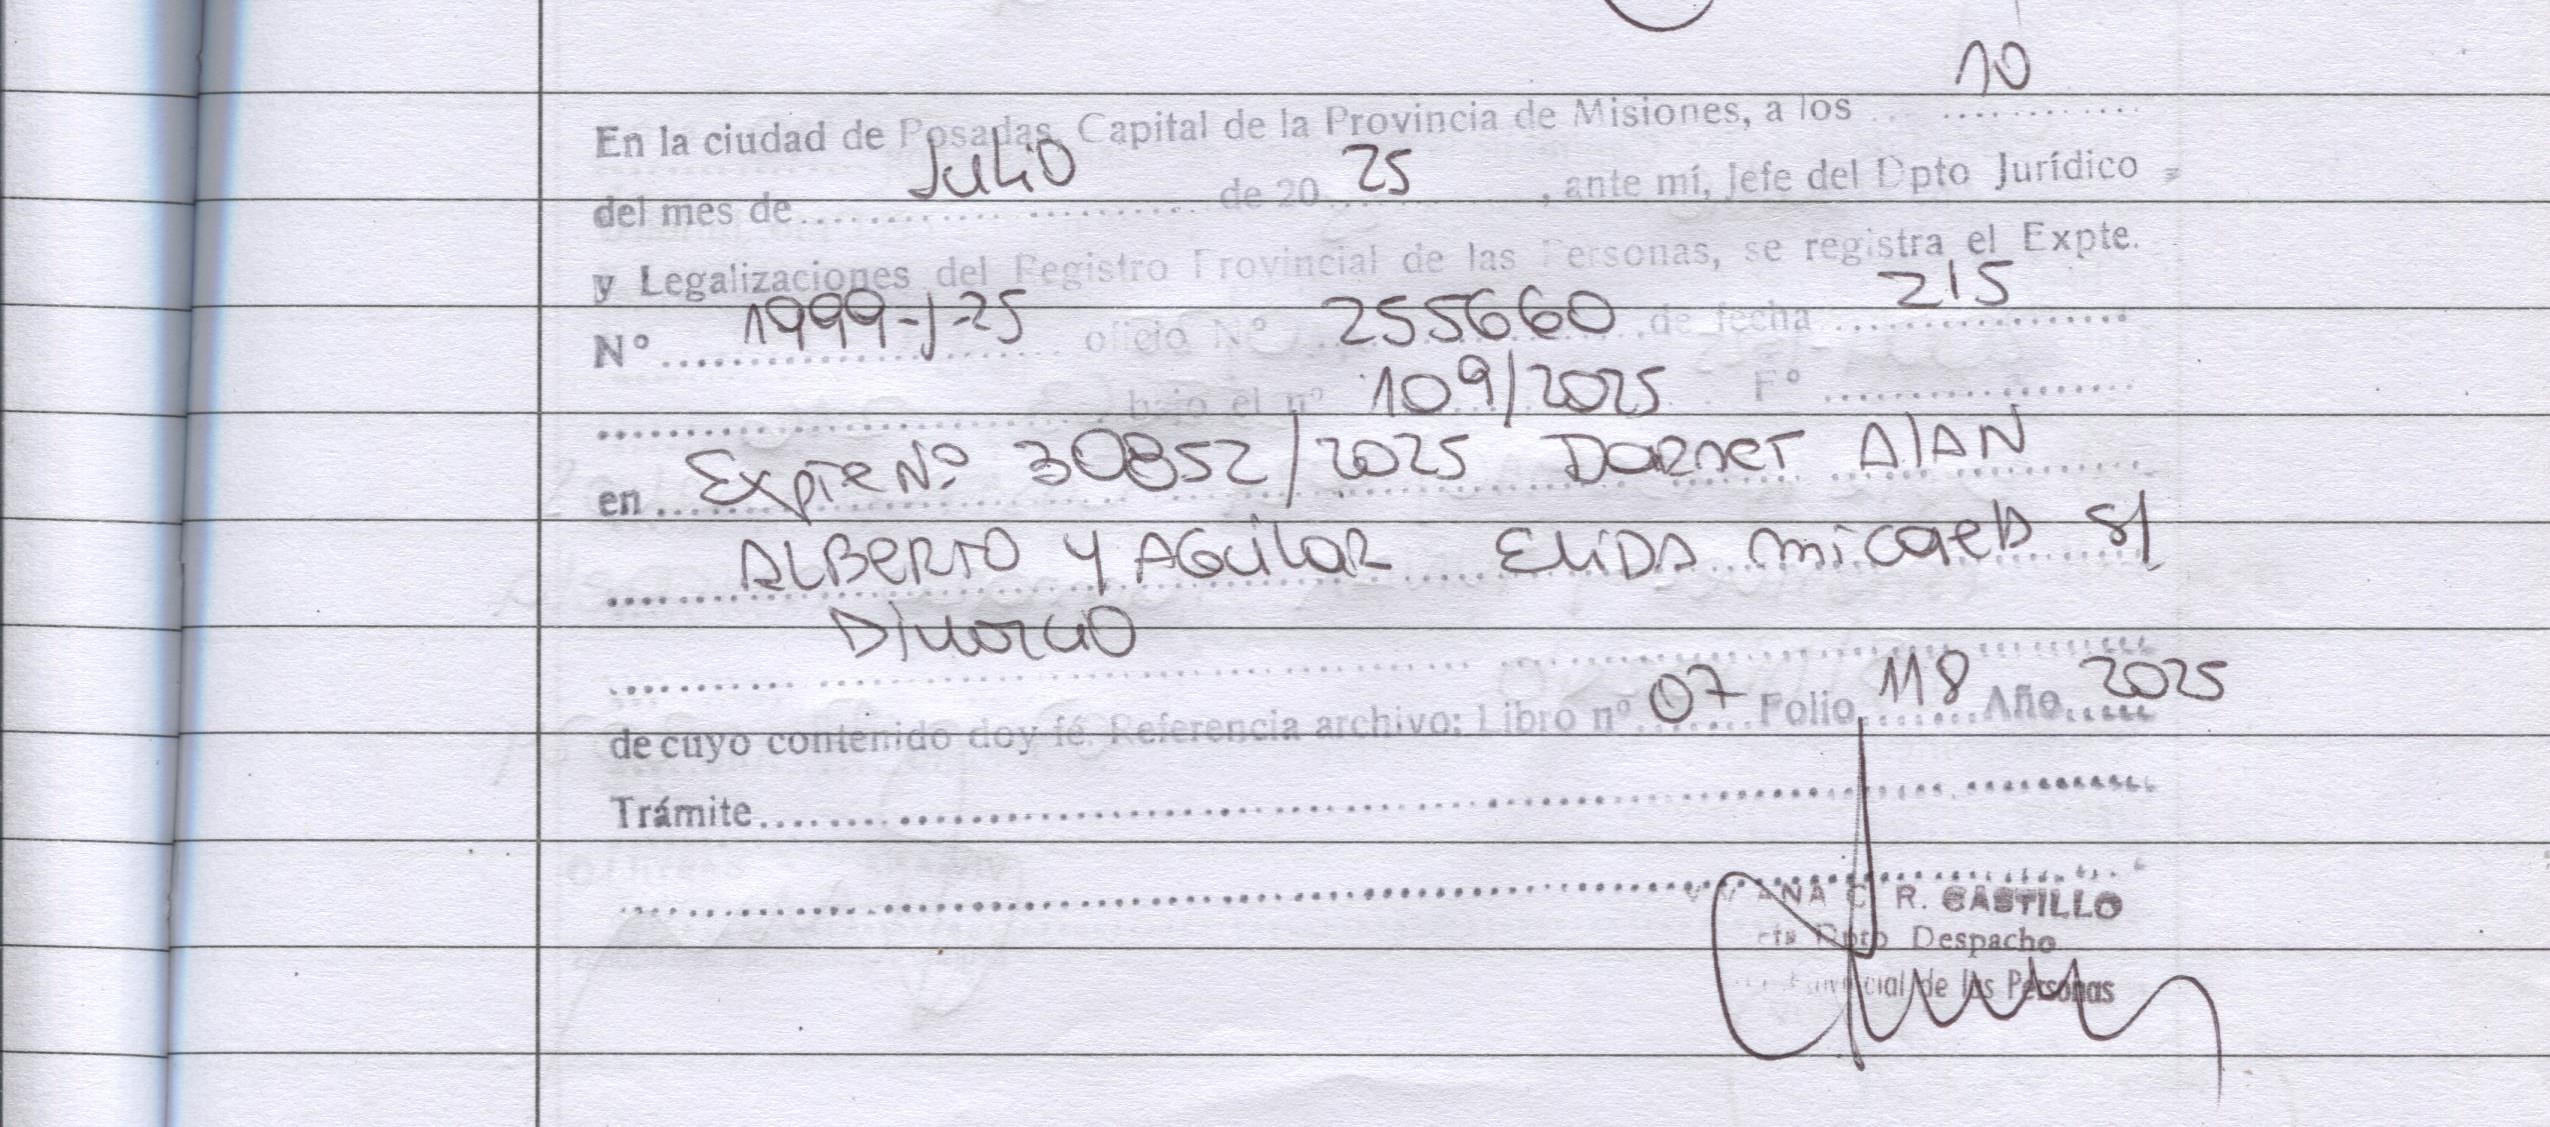 En la ciudad de Posadas, Capital de la Provincia de Misiones, a los 10
del mes de Julio de 20 25, ante mí, Jefe del Dpto Jurídico
y Legalizaciones del Registro Provincial de las Personas, se registra el Expte.
N° 1999-J-25 oficio N° 255660 de fecha 215
bajo el n° 109/2025 F°
en Expte N° 30852/2025 Dornet Alan
ALBERTO Y AGuilar Elida micaela S/
Divorcio
de cuyo contenido doy fé. Referencia archivo: Libro n° 07 Folio 118 Año 2025
Trámite
C R. CASTILLO
Dpto Despacho
de las Personas